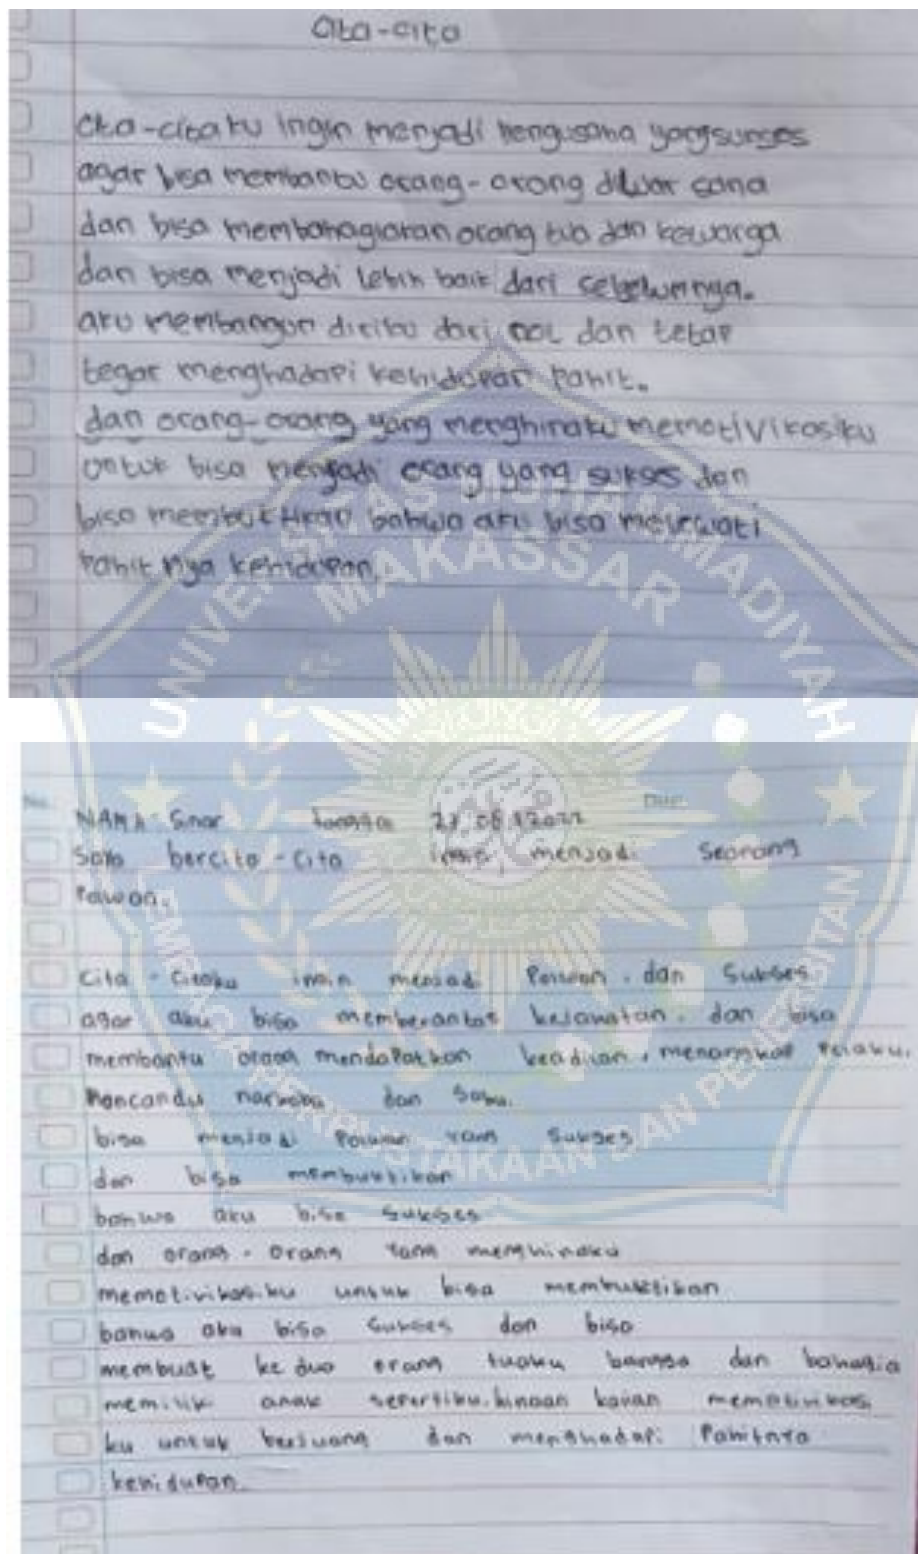 Cita-cita
Cita-citaku ingin menjadi pengusaha yang sukses
agar bisa membantu orang-orang diluar sana
dan bisa membahagiakan orang tua dan keluarga
dan bisa menjadi lebih baik dari sebelumnya.
aku membangun diriku dari nol dan tetap
tegar menghadapi kehidupan pahit.
dan orang-orang yang menghinaku memotivikasiku
untuk bisa menjadi orang yang sukses dan
bisa membuktikan bahwa aku bisa melewati
pahitnya kehidupan.
UNIVERSITAS MUHAMMADIYAH
MAKASSAR
NAMA Sinar
Saya bercita-cita ingin menjadi Seorang
Cita-citaku ingin menjadi Polwan. dan Sukses
agar aku bisa memberantas kejahatan. dan bisa
membantu orang mendapatkan keadilan, menangkap Pelaku.
Pencandu narkoba dan Sabu.
bisa menjadi Polwan yang Sukses
dan bisa membuktikan
bahwa aku bisa Sukses
dan orang-orang yang menghinaku
memotivikasiku untuk bisa membuktikan
bahwa aku bisa Sukses dan bisa
membuat ke dua orang tuaku bangga dan bahagia
memiliki anak sepertiku. hinaan kalian memotivikasi
ku untuk berjuang dan menghadapi Pahitnya
kehidupan.
LEMBAGA PERPUSTAKAAN DAN PENERBITAN